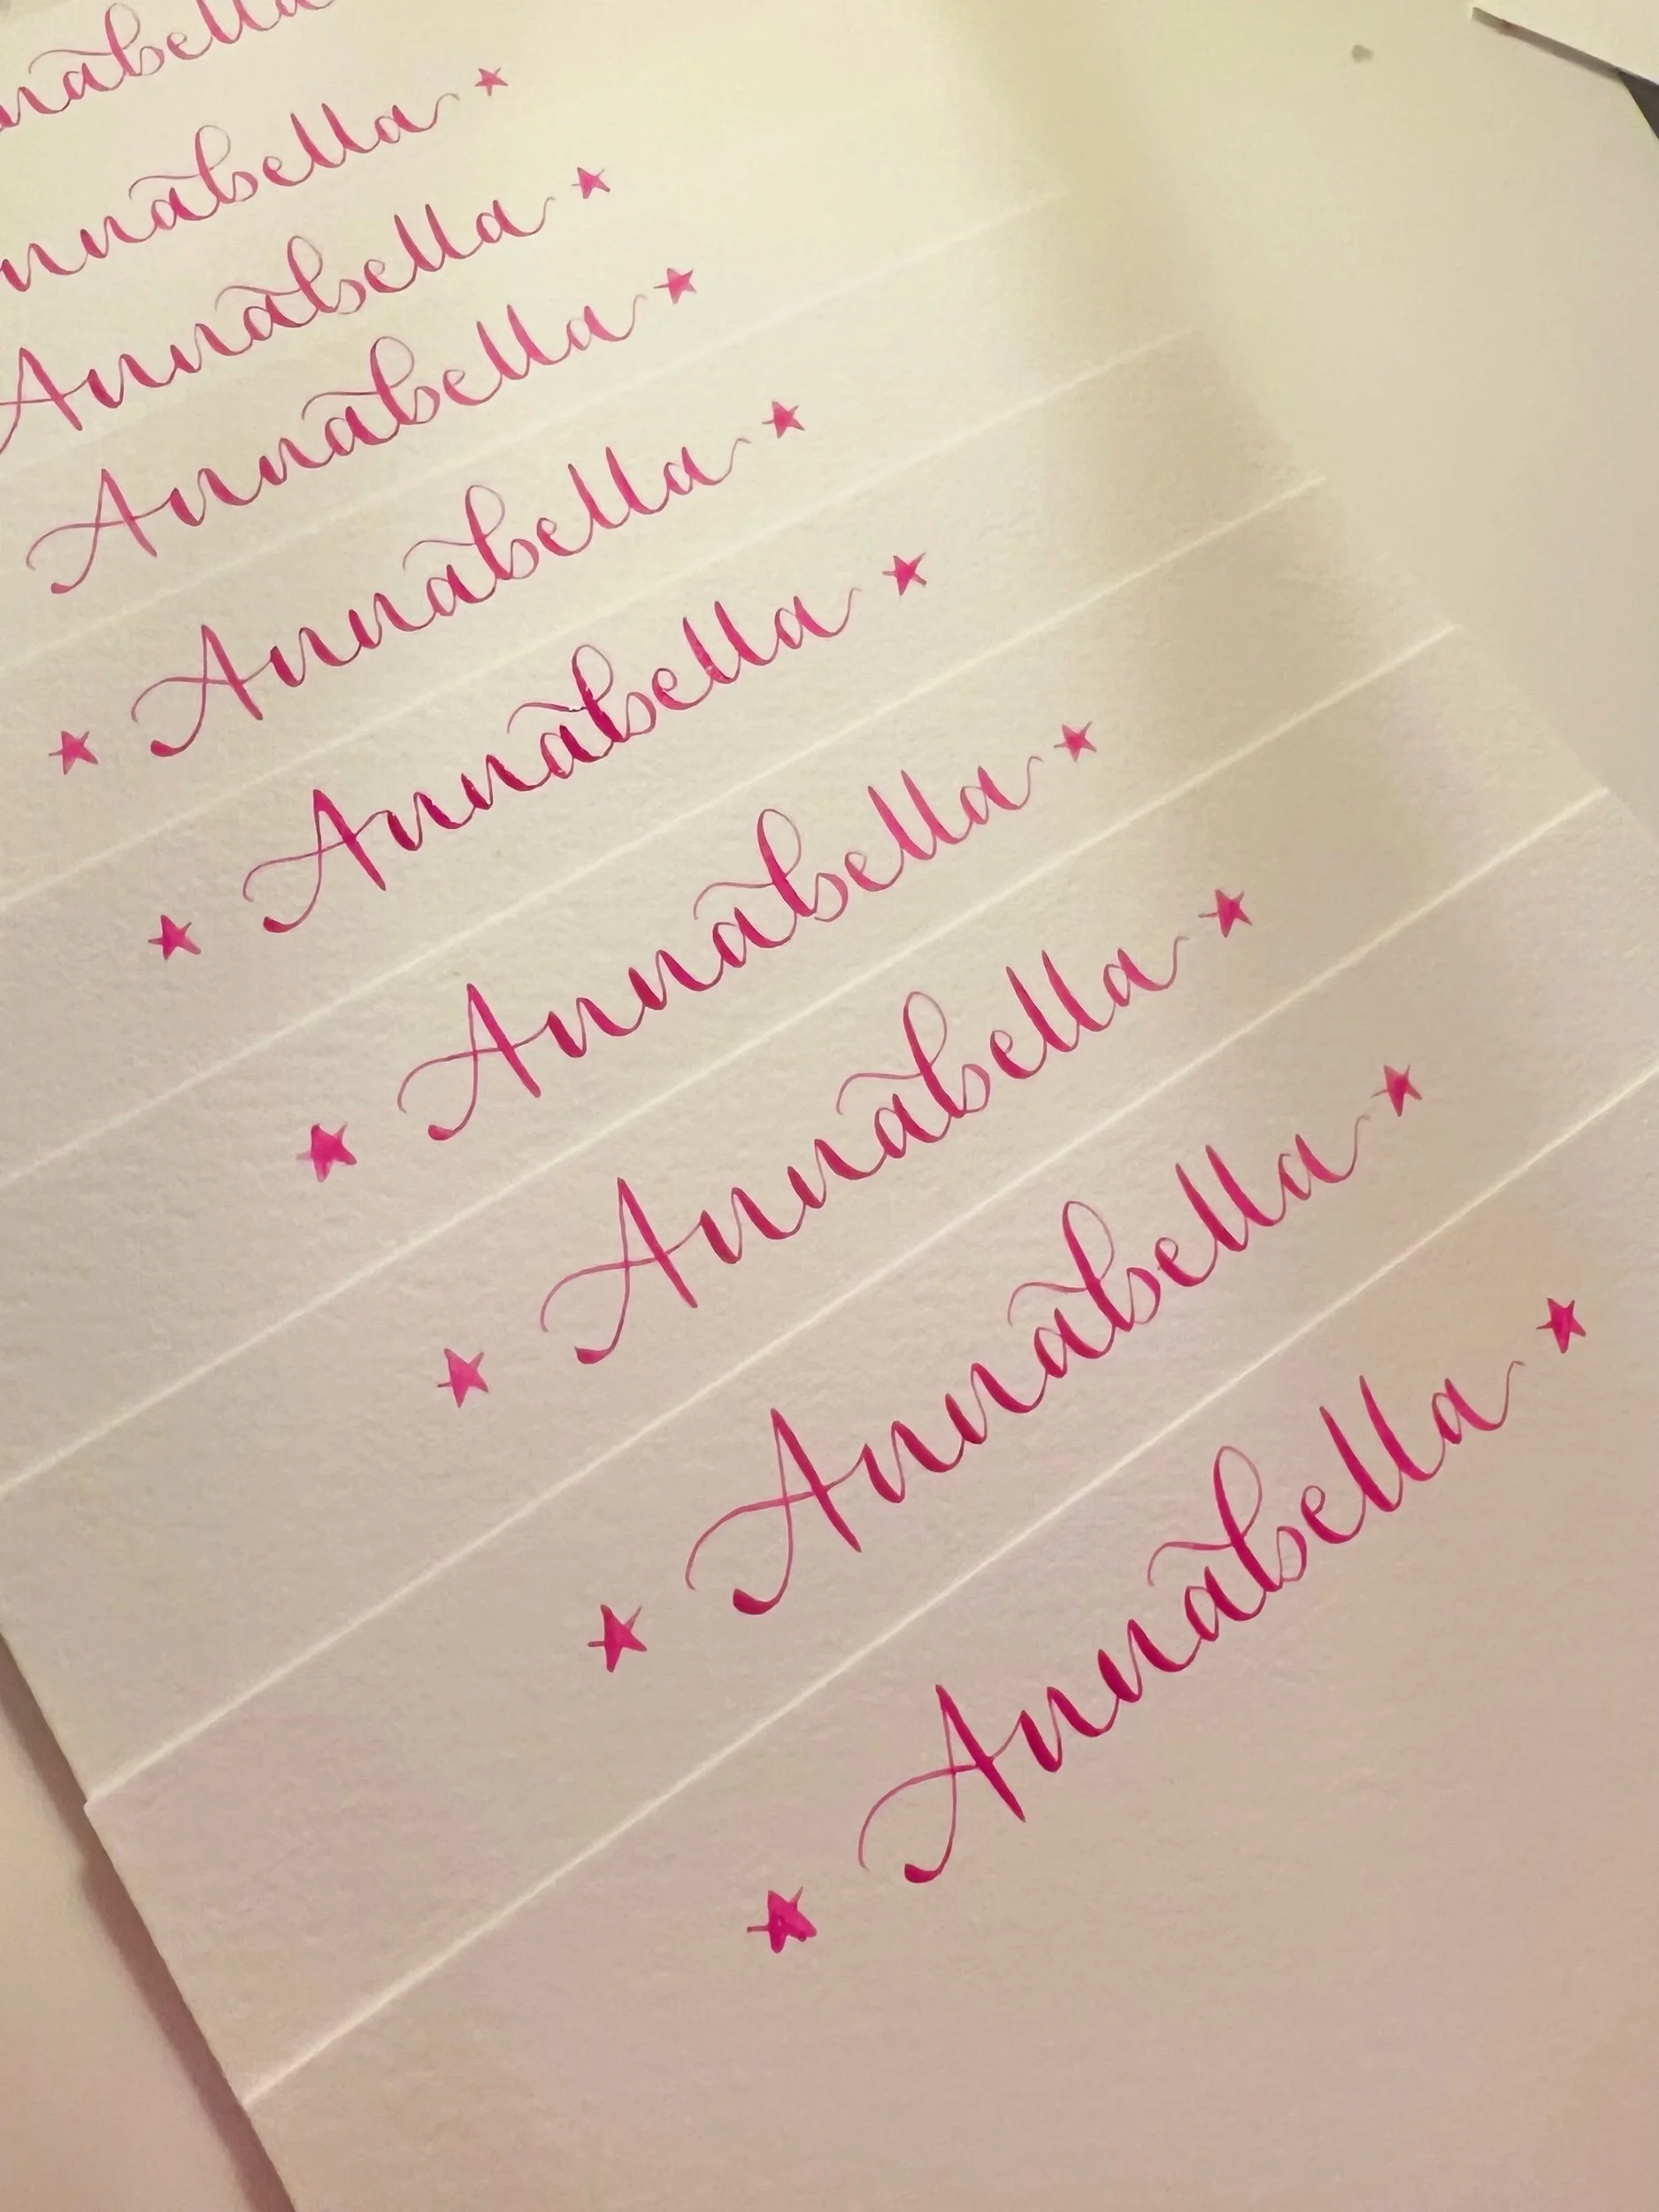 nabella
nnabella ★
Annabella ★
Annabella ★
★ Annabella ★
★ Annabella ★
★ Annabella ★
★ Annabella ★
★ Annabella ★
★ Annabella ★